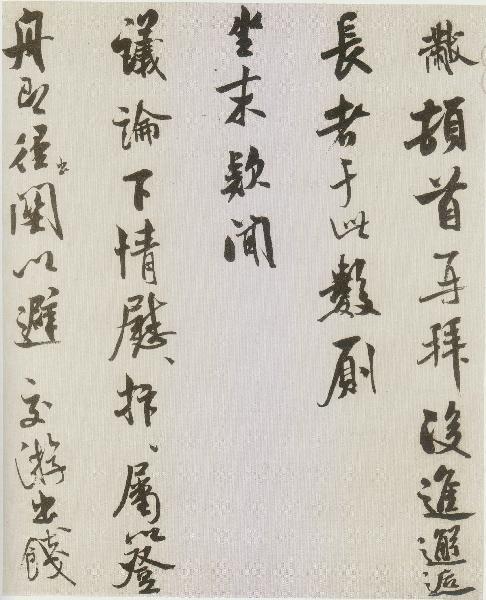 黻頓首再拜後進邂逅
長者于此數厠
坐末欵聞
議論下情慰、抃、屬以登
舟即徑出關以避 交游出餞